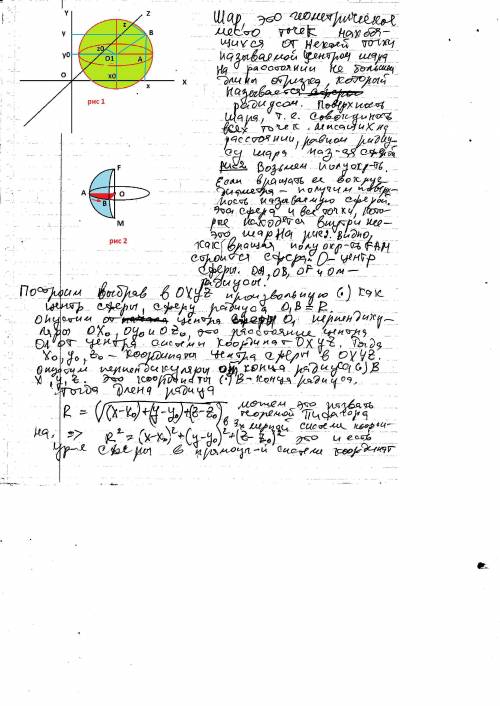 Y
Z
z
Y
B
y0
z0
O1
A
O
x0
x
X
рис 1
F
A
O
B
M
рис 2
Шар это геометрическое
место точек находя-
щихся от некой точки
называемой центром шара
на расстоянии не больш
длины отрезка, который
называется
радиусом. Поверхность
шара, т.е. совокупность
всех точек лежащих на
расстоянии, равном радиу-
су шара наз-ая сфера
Возьмем полуокр-ть.
Если вращать ее вокруг
диаметра - получим поверх-
ность называемую сферой.
Эта сфера и все точки, кото-
рые находятся внутри нее -
это шар. На рис2. видно,
как вращая полуокр-ть FAM
строится сфера. O - центр
сферы. OA, OB, OF и OM -
радиусы.
Построим выбрав в OXYZ произвольную (.) как
центр сферы, сферу радиуса O₁B = R.
Опустим от центра O₁ перпендику-
ляры OX₀, OY₀ и OZ₀, это расстояние центра
O₁ от центра системы координат OXYZ. Тогда
x₀, y₀, z₀ - координаты центра сферы в OXYZ.
Опустим перпендикуляры от конца радиуса (.) B
x, y, z. Это координаты (.) B - конца радиуса.
Тогда длена радиуса
R = √((x-x₀)+(y-y₀)+(z-z₀) можем это назвать
теоремой Пифагора
в 3х мерной системе коорди-
на, => R² = (x-x₀)² + (y-y₀)² + (z-z₀)² это и есть
ур-е сферы в прямоуг-й системе координат